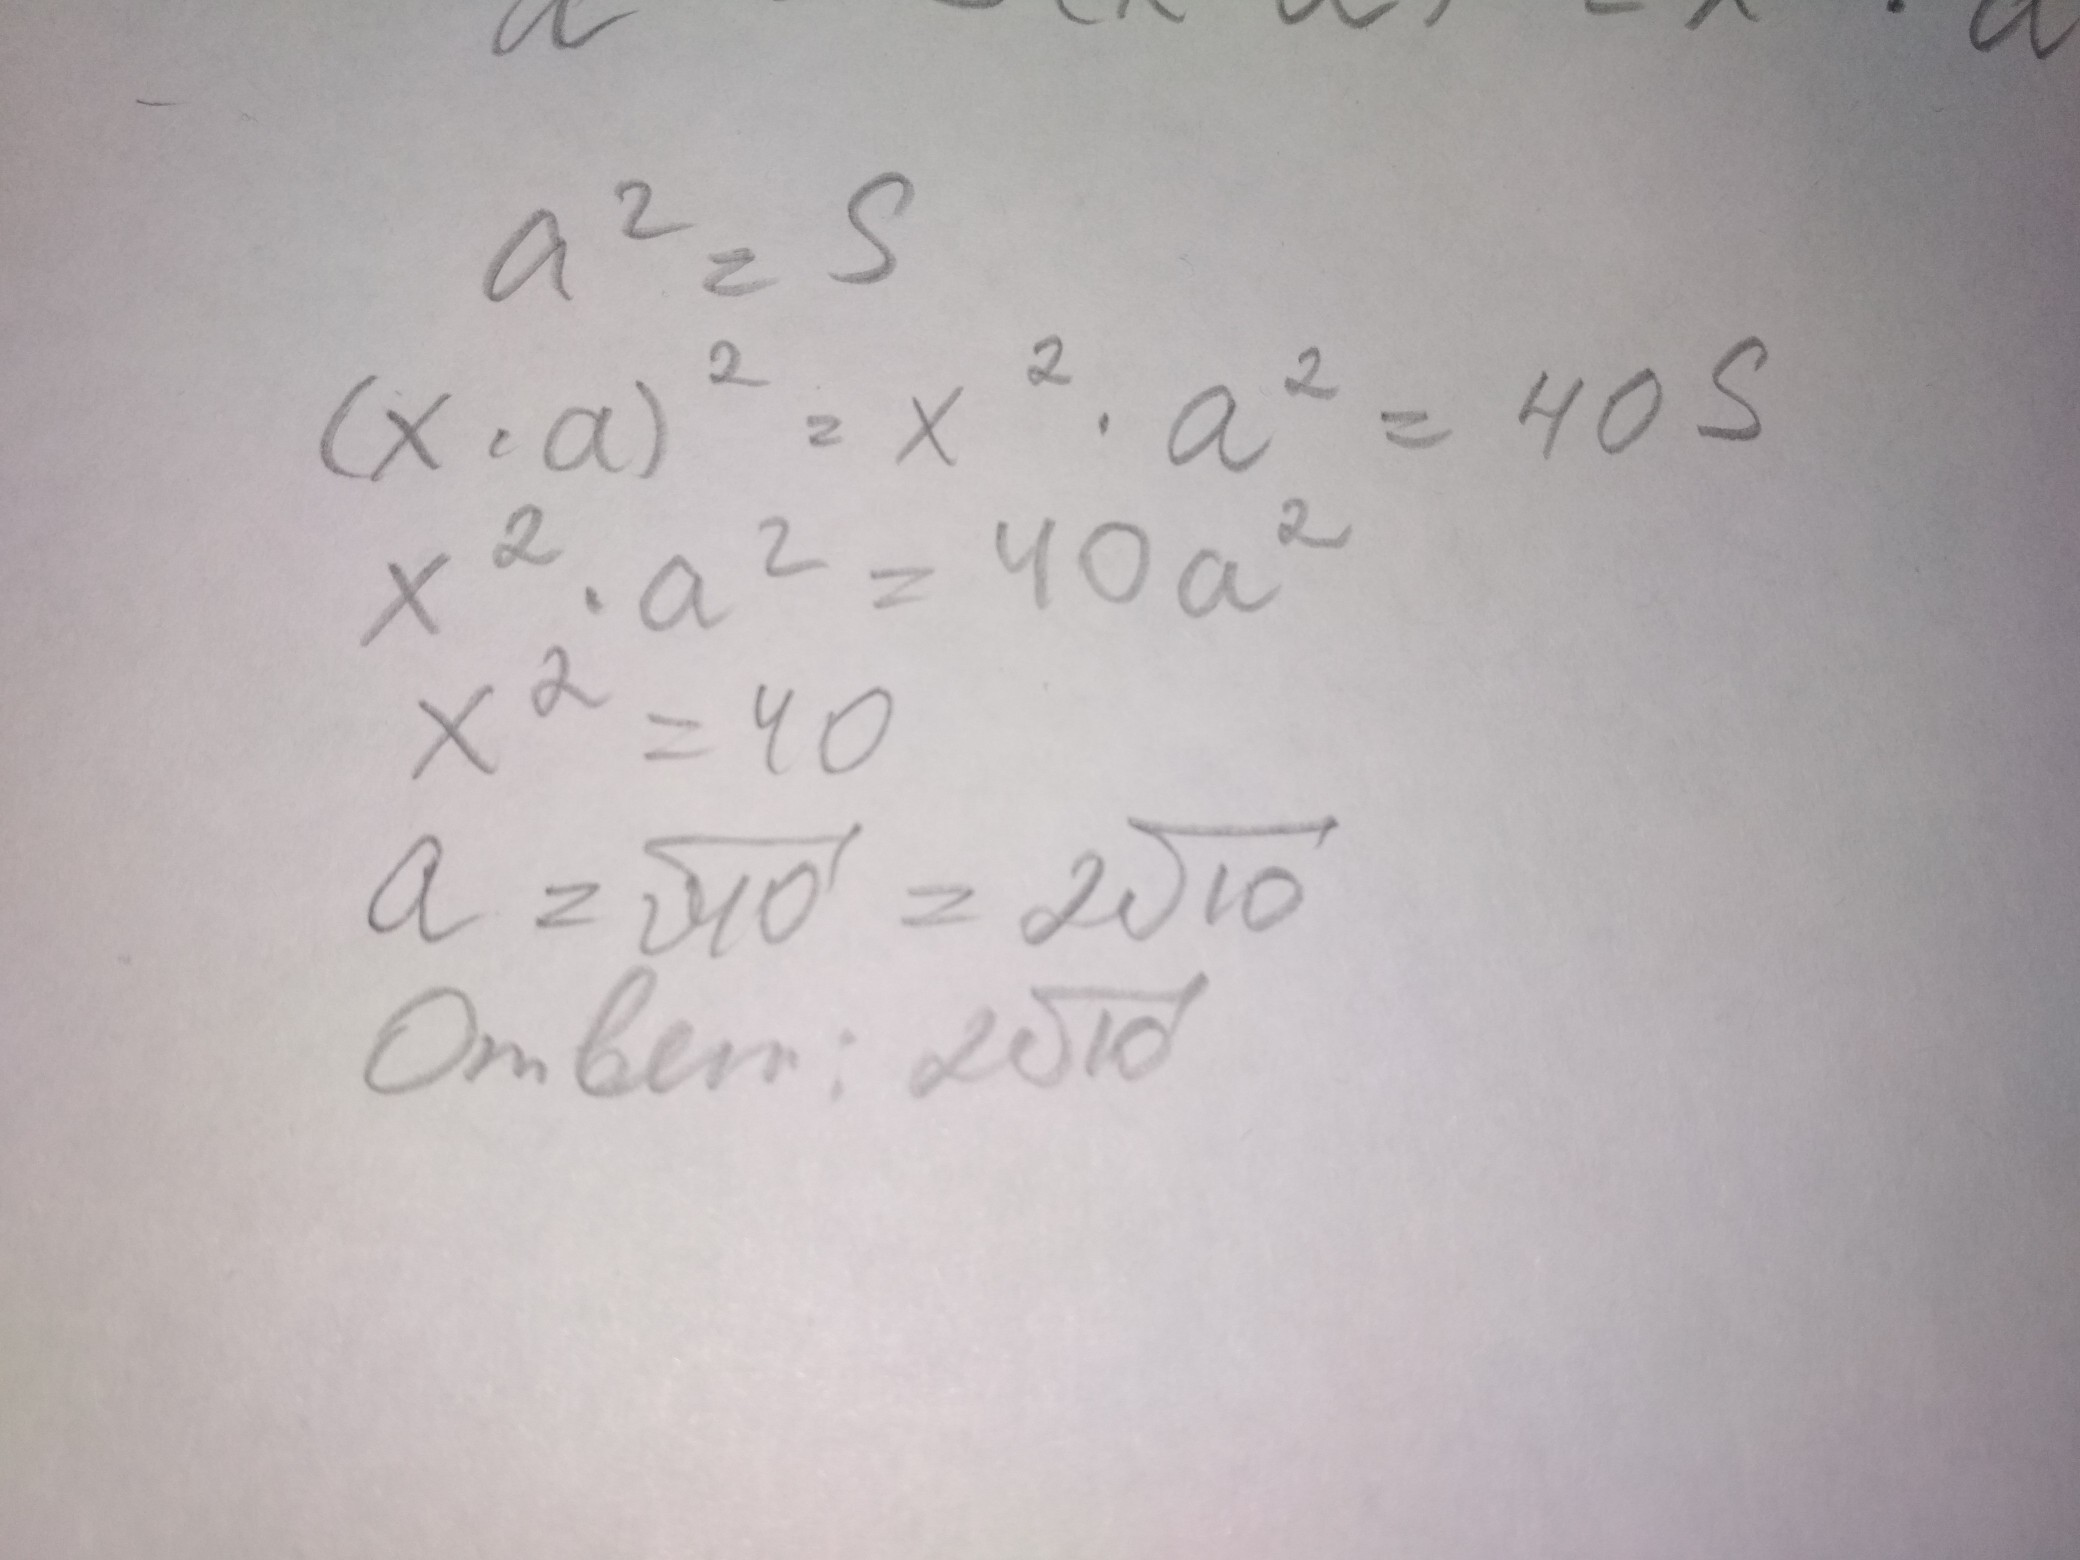 a² = S
(x · a)² = x² · a² = 40 S
x² · a² = 40 a²
x² = 40
a = √40 = 2√10
Ответ: 2√10